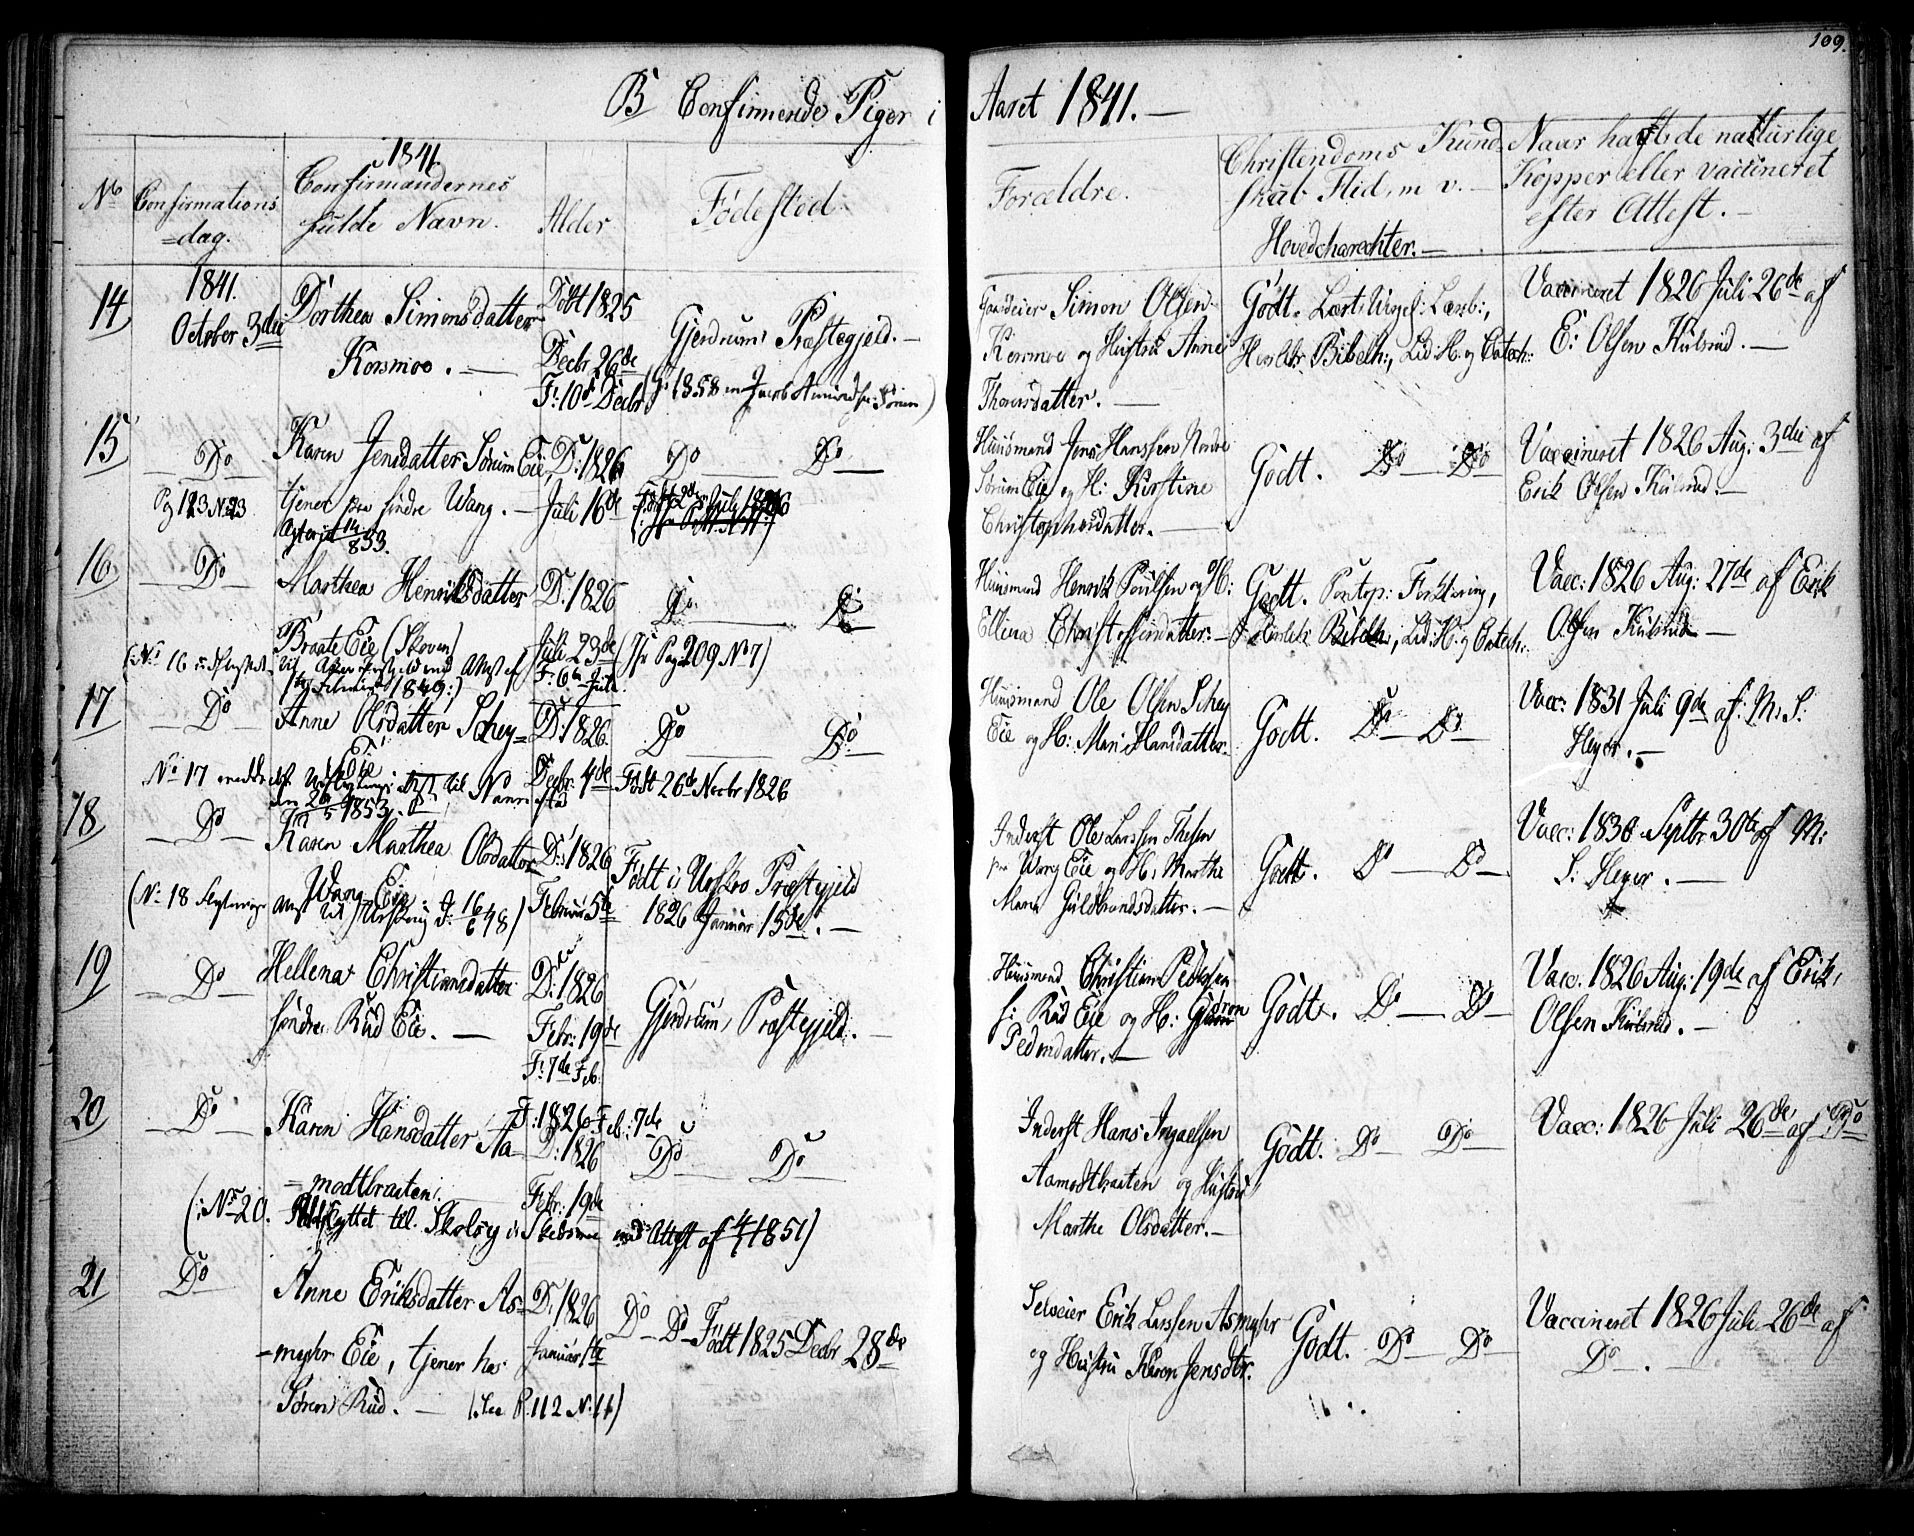 109.
B Confirmerede Piger i Aaret 1841.—
No
Confirmations
=dag.
1841
Confirmandernes
fulde Navn.
Alder
Fødested
Forældre.
Christendoms Kund
skab Flid, m. v.—
Hovedcharachter.—
Naar hafte de naturlige
Kopper eller vaccineret
efter Attest.—
14
1841.
October 3die
Dorthea Simonsdatter
Korsmoe.—
Døbt 1825
Decbr 26de
F: 10de Decbr
Gjerdrums Præstegjeld.—
Simon Olsen
Korsmoe og Hustru Anne
Thorsdatter.—
Godt.
Vaccineret 1826 Juli 26de af
E: Olsen Kulsrud.—
15
Do
Pg 123 N: 23
Karen Jensdatter Sørum Eie,
tjener paa søndre Wang.—
D: 1826
Juli 16de
Do Do
Huusmand Jens Hanssen Nordre
Sørum Eie og H: Kirstine
Christophersdatter.—
Godt. Do Do
Vaccineret 1826 Aug: 3die af
Erik Olsen Kulsrud.—
16
Do
Marthea Henriksdatter
Braate Eie (Skoven)
D: 1826
Juli 23de
F: 6te Juli
Do Do
(See Pag 209 No 7)
Huusmand Henrik Poulsen og H:
Ellina Christophersdatter.—
Godt.
Vacc: 1826 Aug: 27de af Erik
Olsen Kulsrud—
(: No 16
1849:)
17
Do
Anne Olsdatter Schey=
Eie
D: 1826.
Decbr. 4de
Do Do
Født 26de Novbr 1826
Huusmand Ole Olsen Schey
Eie og H: Mari Hansdatter.
Godt. Do Do
Vacc: 1831 Juli 9de af M. S.
Heyer.—
No 17
1853.
18
Do
Karen Marthea Olsdatter
Wang Eie.
D: 1826
Februar 5te
Født i Urskou Præstegjeld
1826 Januar 15de.—
Inderst Ole Larssen
Wang Eie og H: Marthe
Marie Guldbrandsdatter.—
Godt. Do Do
Vacc: 1830 Septbr 30te af M:
S: Heyer.—
(No 18
19
Do
Hellena Christiansdatter
søndre Rud Eie.—
D: 1826
Febr: 19de
F: 7de Feb:
Gjerdrum, Præstegjeld.—
Huusmand Christian Pedersen
s: Rud Eie og H:
Pedersdatter.—
Godt. Do Do
Vacc: 1826 Aug: 19de af Erik
Olsen Kulsrud.—
20
Do
Karen Hansdatter Aa-
-modtbraaten.
F: 1826 Feb: 7de
D: 1826
Febr: 19de
Do Do
(: No 20. Udflyttet til Skolsey i Skedsmoe med Attest af 4/4 1851)
Inderst Hans Ingaelsen
Aamodtbraaten og Hustru
Marthe Olsdatter.—
Godt. Do Do
Vacc: 1826 Juli 26de af Do
21
Do
Anne Eriksdatter As-
-myhr Eie, tjener hos
Søren Rud.—
D: 1826
Januar 1te
Do Do Født 1825 Decbr 28de
(See P. 112 N: 11)
Selveier Erik Larssen Asmyhr
og Hustru Karen Jensdtr.
Godt. Do Do
Vaccineret 1826 Juli 26de af
Do.